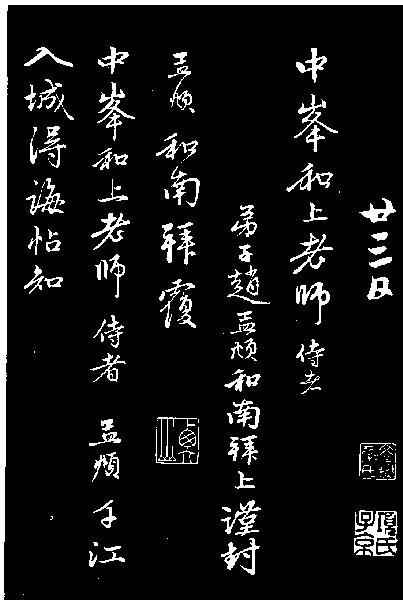 廿三日
中峯和上老師侍者
弟子趙孟頫和南拜上謹封
孟頫和南拜覆
中峯和上老師侍者 孟頫手江
入城得誨帖知
項氏子京